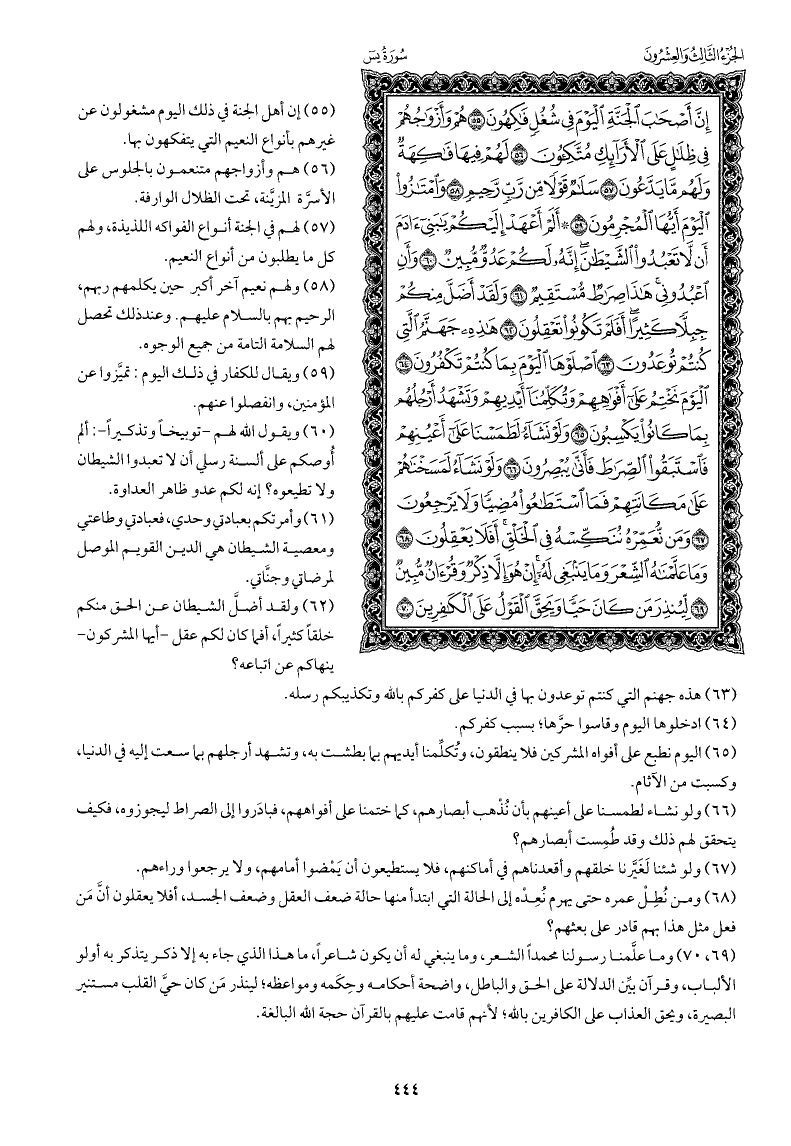 الجُزْءُ الثَّالِثُ وَالعِشْرُونَ
سُورَةُ يسٓ
إِنَّ أَصْحَٰبَ ٱلْجَنَّةِ ٱلْيَوْمَ فِى شُغُلٍ فَٰكِهُونَ ٥٥ هُمْ وَأَزْوَٰجُهُمْ
فِى ظِلَٰلٍ عَلَى ٱلْأَرَآئِكِ مُتَّكِـُٔونَ ٥٦ لَهُمْ فِيهَا فَٰكِهَةٌ
وَلَهُم مَّا يَدَّعُونَ ٥٧ سَلَٰمٌ قَوْلًا مِّن رَّبٍّ رَّحِيمٍ ٥٨ وَٱمْتَٰزُوا۟
ٱلْيَوْمَ أَيُّهَا ٱلْمُجْرِمُونَ ٥٩ ۞ أَلَمْ أَعْهَدْ إِلَيْكُمْ يَٰبَنِىٓ ءَادَمَ
أَن لَّا تَعْبُدُوا۟ ٱلشَّيْطَٰنَ ۖ إِنَّهُۥ لَكُمْ عَدُوٌّ مُّبِينٌ ٦٠ وَأَنِ
ٱعْبُدُونِى ۚ هَٰذَا صِرَٰطٌ مُّسْتَقِيمٌ ٦١ وَلَقَدْ أَضَلَّ مِنكُمْ
جِبِلًّا كَثِيرًا ۖ أَفَلَمْ تَكُونُوا۟ تَعْقِلُونَ ٦٢ هَٰذِهِۦ جَهَنَّمُ ٱلَّتِى
كُنتُمْ تُوعَدُونَ ٦٣ ٱصْلَوْهَا ٱلْيَوْمَ بِمَا كُنتُمْ تَكْفُرُونَ ٦٤
ٱلْيَوْمَ نَخْتِمُ عَلَىٰٓ أَفْوَٰهِهِمْ وَتُكَلِّمُنَآ أَيْدِيهِمْ وَتَشْهَدُ أَرْجُلُهُم
بِمَا كَانُوا۟ يَكْسِبُونَ ٦٥ وَلَوْ نَشَآءُ لَطَمَسْنَا عَلَىٰٓ أَعْيُنِهِمْ
فَٱسْتَبَقُوا۟ ٱلصِّرَٰطَ فَأَنَّىٰ يُبْصِرُونَ ٦٦ وَلَوْ نَشَآءُ لَمَسَخْنَٰهُمْ
عَلَىٰ مَكَانَتِهِمْ فَمَا ٱسْتَطَٰعُوا۟ مُضِيًّا وَلَا يَرْجِعُونَ
٦٧ وَمَن نُّعَمِّرْهُ نُنَكِّسْهُ فِى ٱلْخَلْقِ ۖ أَفَلَا يَعْقِلُونَ ٦٨
وَمَا عَلَّمْنَٰهُ ٱلشِّعْرَ وَمَا يَنۢبَغِى لَهُۥٓ ۚ إِنْ هُوَ إِلَّا ذِكْرٌ وَقُرْءَانٌ مُّبِينٌ
٦٩ لِّيُنذِرَ مَن كَانَ حَيًّا وَيَحِقَّ ٱلْقَوْلُ عَلَى ٱلْكَٰفِرِينَ ٧٠
(٥٥) إن أهل الجنة في ذلك اليوم مشغولون عن
غيرهم بأنواع النعيم التي يتفكهون بها.
(٥٦) هم وأزواجهم متنعمون بالجلوس على
الأسرَّة المزيَّنة، تحت الظلال الوارفة.
(٥٧) لهم في الجنة أنواع الفواكه اللذيذة، ولهم
كل ما يطلبون من أنواع النعيم.
(٥٨) ولهم نعيم آخر أكبر حين يكلمهم ربهم،
الرحيم بهم بالسلام عليهم. وعندذلك تحصل
لهم السلامة التامة من جميع الوجوه.
(٥٩) ويقال للكفار في ذلك اليوم : تميَّزوا عن
المؤمنين، وانفصلوا عنهم.
(٦٠) ويقول الله لهم -توبيخاً وتذكيراً-: ألم
أُوصكم على ألسنة رسلي أن لا تعبدوا الشيطان
ولا تطيعوه؟ إنه لكم عدو ظاهر العداوة.
(٦١) وأمرتكم بعبادتي وحدي، فعبادتي وطاعتي
ومعصية الشيطان هي الدين القويم الموصل
لمرضاتي وجنَّاتي.
(٦٢) ولقد أضلَّ الشيطان عن الحق منكم
خلقاً كثيراً، أفما كان لكم عقل -أيها المشركون-
ينهاكم عن اتباعه؟
(٦٣) هذه جهنم التي كنتم توعدون بها في الدنيا على كفركم بالله وتكذيبكم رسله.
(٦٤) ادخلوها اليوم وقاسوا حرَّها؛ بسبب كفركم.
(٦٥) اليوم نطبع على أفواه المشركين فلا ينطقون، وتُكلِّمنا أيديهم بما بطشت به، وتشهد أرجلهم بما سعت إليه في الدنيا،
وكسبت من الآثام.
(٦٦) ولو نشاء لطمسنا على أعينهم بأن نُذْهب أبصارهم، كما ختمنا على أفواههم، فبادَروا إلى الصراط ليجوزوه، فكيف
يتحقق لهم ذلك وقد طُمِست أبصارهم؟
(٦٧) ولو شئنا لَغَيَّرنا خلقهم وأقعدناهم في أماكنهم، فلا يستطيعون أن يَمْضوا أمامهم، ولا يرجعوا وراءهم.
(٦٨) ومن نُطِلْ عمره حتى يهرم نُعِدْه إلى الحالة التي ابتدأ منها حالة ضعف العقل وضعف الجسد، أفلا يعقلون أنَّ مَن
فعل مثل هذا بهم قادر على بعثهم؟
(٦٩، ٧٠) وما علَّمنا رسولنا محمداً الشعر، وما ينبغي له أن يكون شاعراً، ما هذا الذي جاء به إلا ذكر يتذكر به أولو
الألباب، وقرآن بيِّن الدلالة على الحق والباطل، واضحة أحكامه وحِكَمه ومواعظه؛ لينذر مَن كان حيَّ القلب مستنير
البصيرة، ويحق العذاب على الكافرين بالله؛ لأنهم قامت عليهم بالقرآن حجة الله البالغة.
٤٤٤